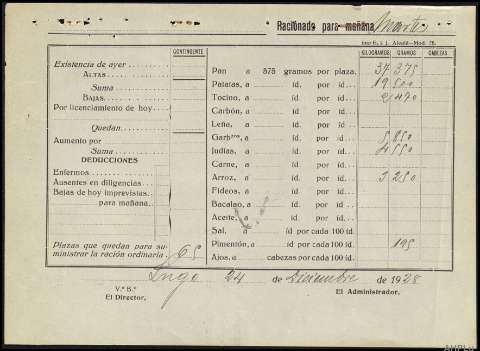 Racionado para mañana Martes
Imp. G. S. J. Alcalá—Mod. 75.
CONTINGENTE
KILOGRAMOS GRAMOS CABEZAS
Existencia de ayer
ALTAS
Suma
BAJAS
Por licenciamiento de hoy
Quedan
Aumento por
Suma
DEDUCCIONES
Enfermos
Ausentes en diligencias
Bajas de hoy imprevistas
para mañana
Plazas que quedan para su-
ministrar la ración ordinaria 65
Pan a 575 gramos por plaza. 37 375
Patatas, a id. por id. 19 500
Tocino, a id. por id. 2 470
Carbón, a id. por id.
Leña, a id. por id.
Garb.zos, a id. por id. 5 850
Judías, a id. por id. 4 550
Carne, a id. por id.
Arroz, a id. por id. 3 250
Fideos, a id. por id.
Bacalao, a id. por id.
Aceite, a id. por id.
Sal, a id por cada 100 id.
Pimentón, a id por cada 100 id. 195
Ajos, a cabezas por cada 100 id.
Lugo 24 de Diciembre de 1928
V.º B.º
El Director,
El Administrador,
AHPLu